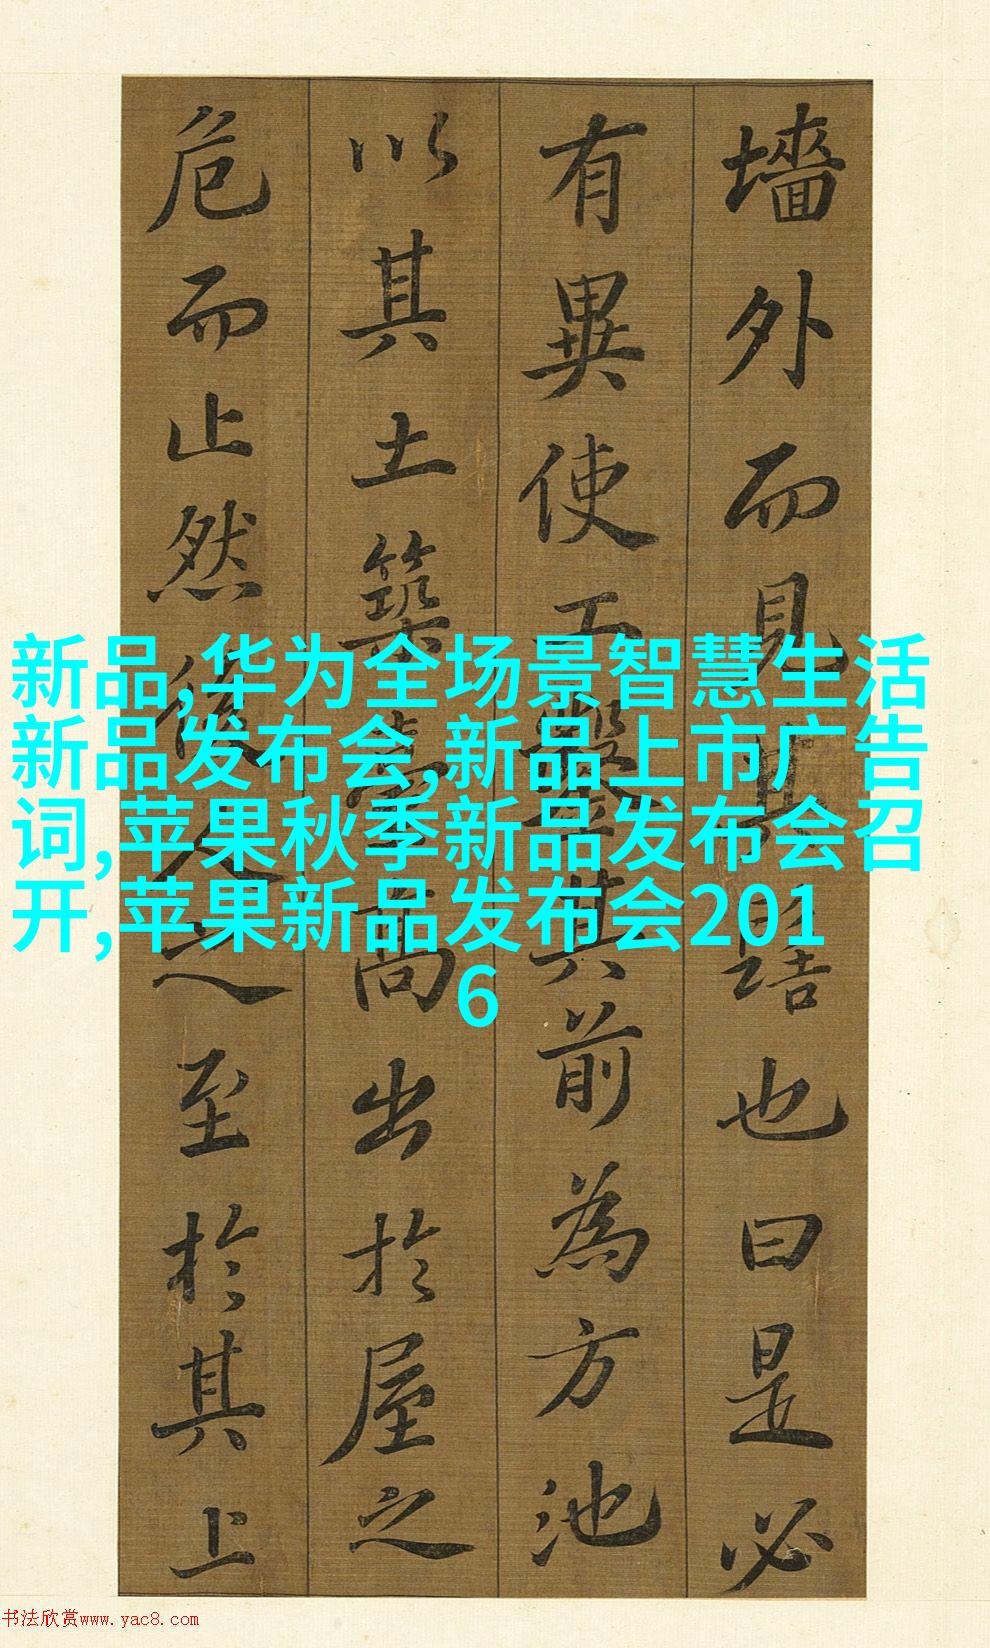 新品,华为全场景智慧生活
新品发布会,新品上市广告
词,苹果秋季新品发布会召
开,苹果新品发布会201
6
墻外而見其髻也曰是必
有異使工鑿其前為方池
以其土築臺高出於屋之
危而止然後人之至於其上
书法欣赏www.yac8.com